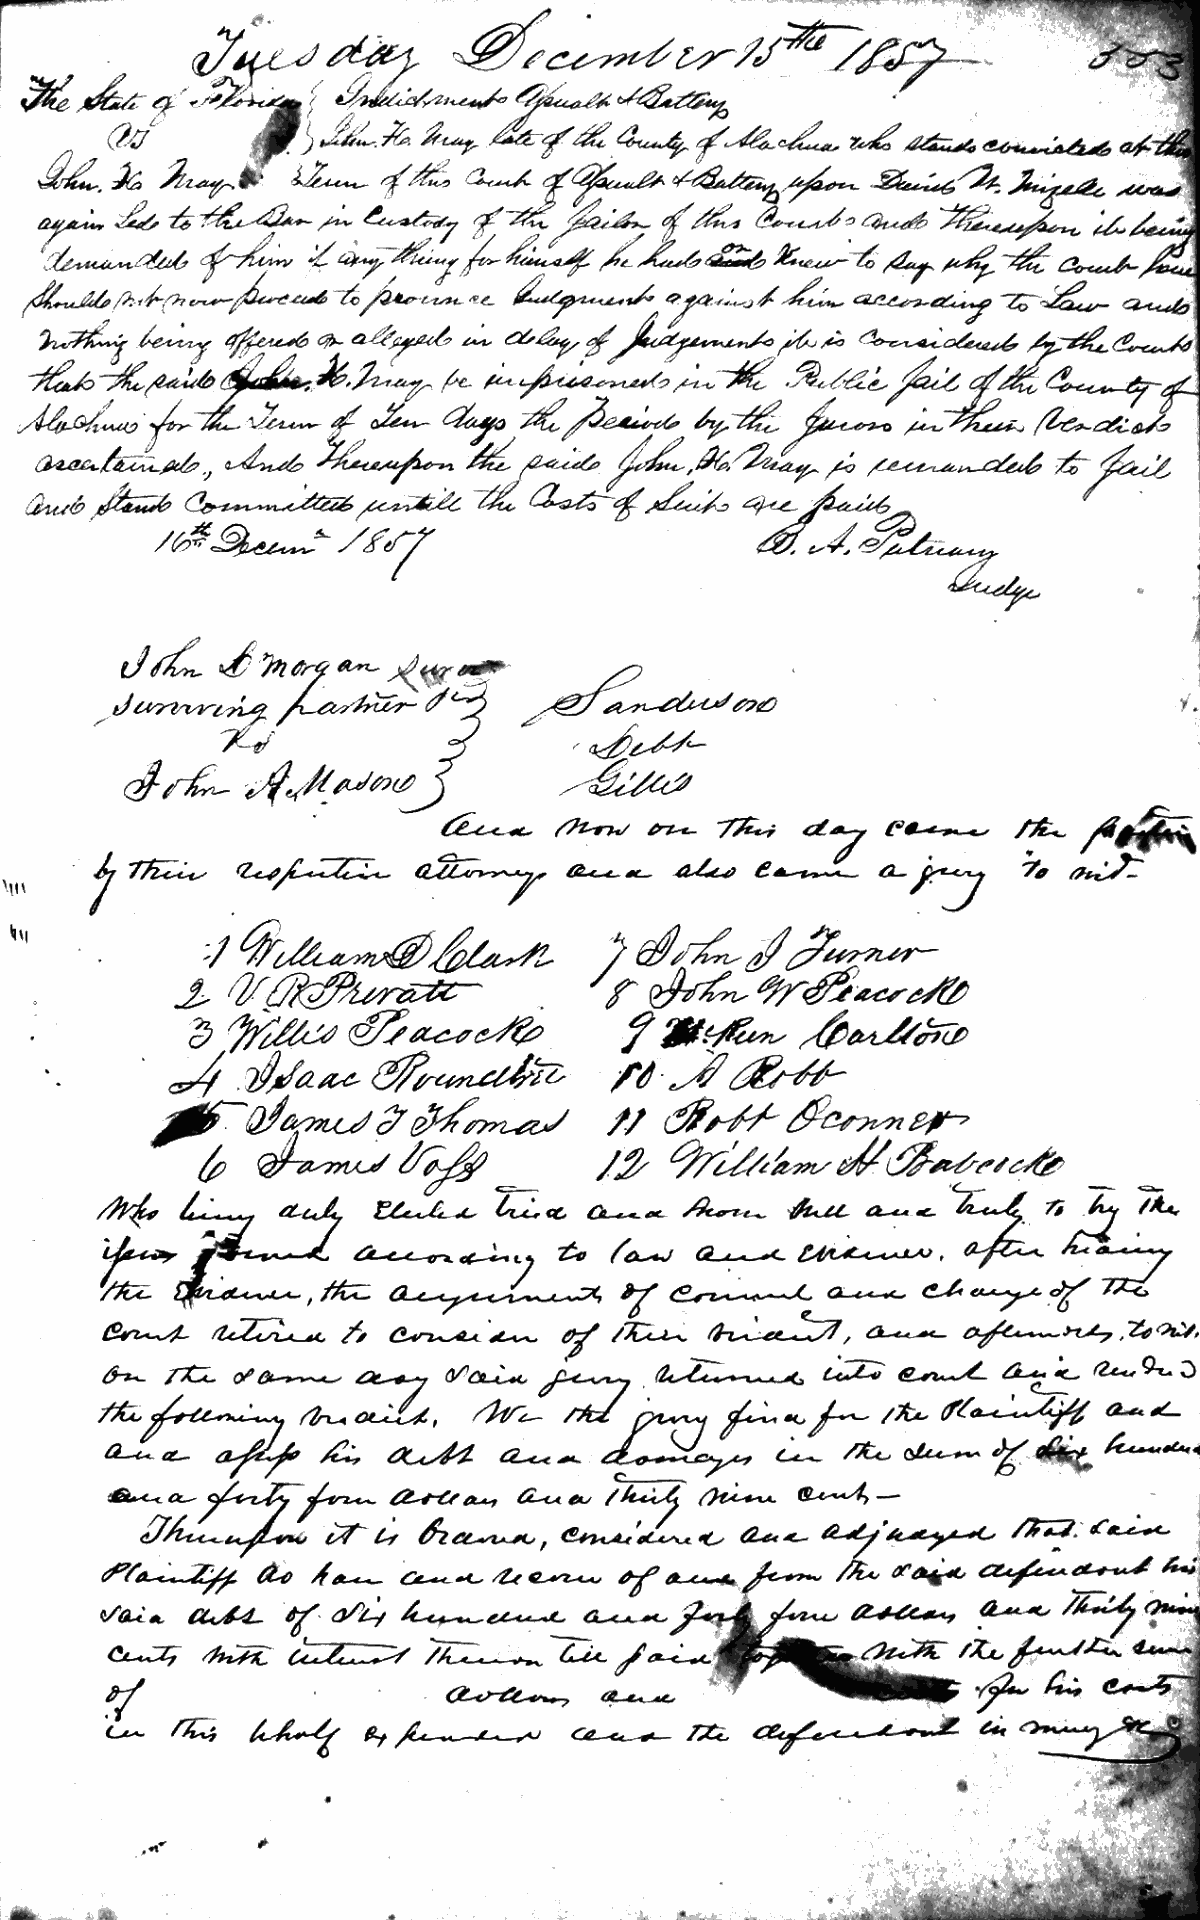 Tuesday December 15th 1857 353
The State of Florida } Indictment Assault & Battery
vs } John. H. May late of the County of Alachua who stands convicted at this
John. H. May. } Term of this Court of Assault & Battery upon David W. Mizelle was
again Led to the Bar in Custody of the Jailor of this Court and Thereupon it being
demanded of him if any thing for himself he had or Knew to say why the Court here
should not now proceed to pronounce Judgment against him according to Law and
nothing being offered or alleged in delay of Judgement it is considered by the Court
that the said John. H. May be imprisoned in the Public Jail of the County of
Alachua for the Term of Ten days the Period by the Jurors in their Verdict
ascertained, And Thereupon the said John. H. May is remanded to Jail
and Stand Committed untill the Costs of Suit are paid
16th Decemr 1857 B. A. Putnam
Judge
John D Morgan
surviving partner &c } Sanderson
vs } Debt
John A. Mason } Gillis
And now on this day came the parties
by their respective attorneys and also came a jury to wit-
1 William D Clark 7 John J Turner
2 V R Prevatt 8 John W Peacock
3 Willis Peacock 9 Carlton
4 Isaac Roundtree 10 A Robb
5 James T Thomas 11 Robt Oconner
6 James Voss 12 William H Babcock
Who being duly Elected tried and sworn well and truly to try the
issue joined according to law and evidence. after hearing
the Evidence, the arguments of counsel and charge of the
court retired to consider of their verdict, and afterwards, to wit,
on the same day said jury returned into court and rendered
the following verdict. We the jury find for the Plaintiff and
and assess his debt and damages in the sum of six hundred
and forty four dollars and thirty nine cents-
Thereupon it is Ordered, considered and adjudged that said
Plaintiff do have and recover of and from the said defendant his
said debt of six hundred and forty four dollars and thirty nine
cents with interest thereon till paid together with the further sum
of dollars and cents for his costs
in this behalf expended and the defendant in mercy &c